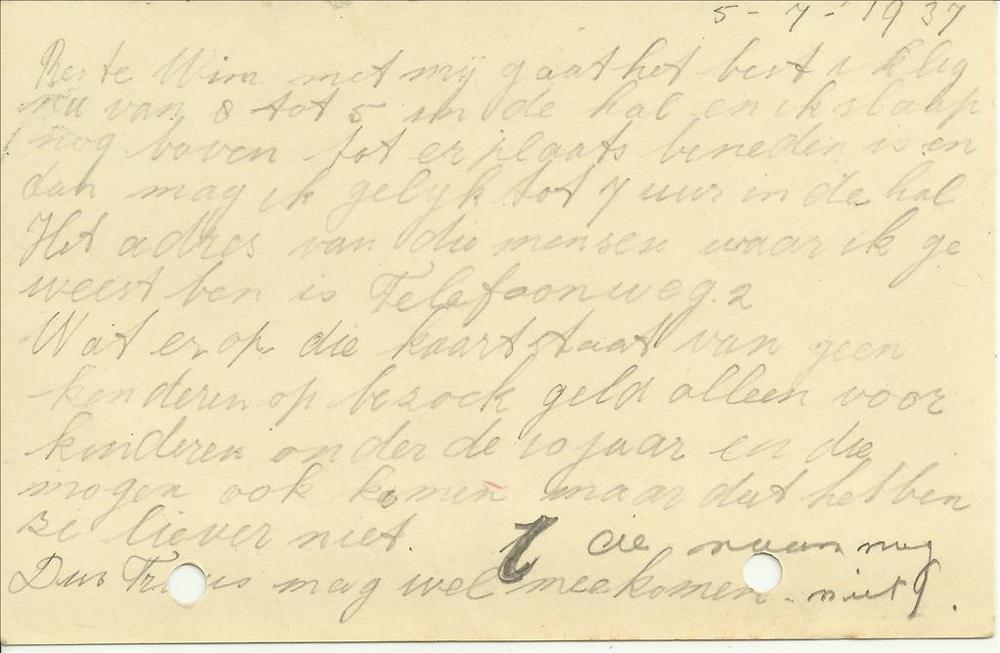 5-7-1937
Beste Wim met mij gaat het best ik lig
nu van 8 tot 5 in de hal en ik slaap
nog boven tot er plaats beneden is en
dan mag ik gelijk tot 7 uur in de hal
Het adres van die mensen waar ik ge
weest ben is Telefoonweg 2
Wat er op die kaart staat van geen
kenderen op bezoek geld alleen voor
kinderen onder de 10 jaar en die
mogen ook komen maar dat hebben
ze liever niet.
de naam nog
Dus mag wel meekomen. niet